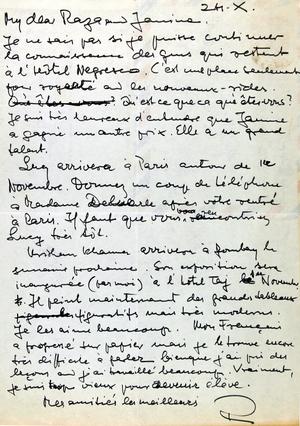 24-X.
My dear Raza and Janine.
Je ne sais pas si je puisse continuer
la connaissance des gens qui restent
à l'Hôtel Negresco. C'est une place seulement
pour royalté au les nouveaux-riches.
Qu'est-ce que ca que êtes vous?
Je suis très heureux d'entendre que Janine
a gagné un autre prix. Elle a un grand
talent.
Lucy arrivera à Paris autour de 1er
Novembre. Donnez un coup de téléphone
à Madame après votre rentré
à Paris. Il faut que vous rencontriez
Lucy très tôt.
Krishen Khanna arrivera à Bombay le
semaine prochaine. Son exposition sera
inaugurée (par moi) à l'Hôtel Taj le 1er Novembre
. Il peint maintenant des grands tableaux
figuratifs mais très modernes.
Je les aime beaucoup. Mon Français
a progressé sur papier mais je le trouve encore
très difficile à parler bien que j'ai pris des
leçons au j'ai travaillé beaucoup. Vraiment,
je suis trop vieux pour devenir élève.
Mes amitiés les meilleurs
R